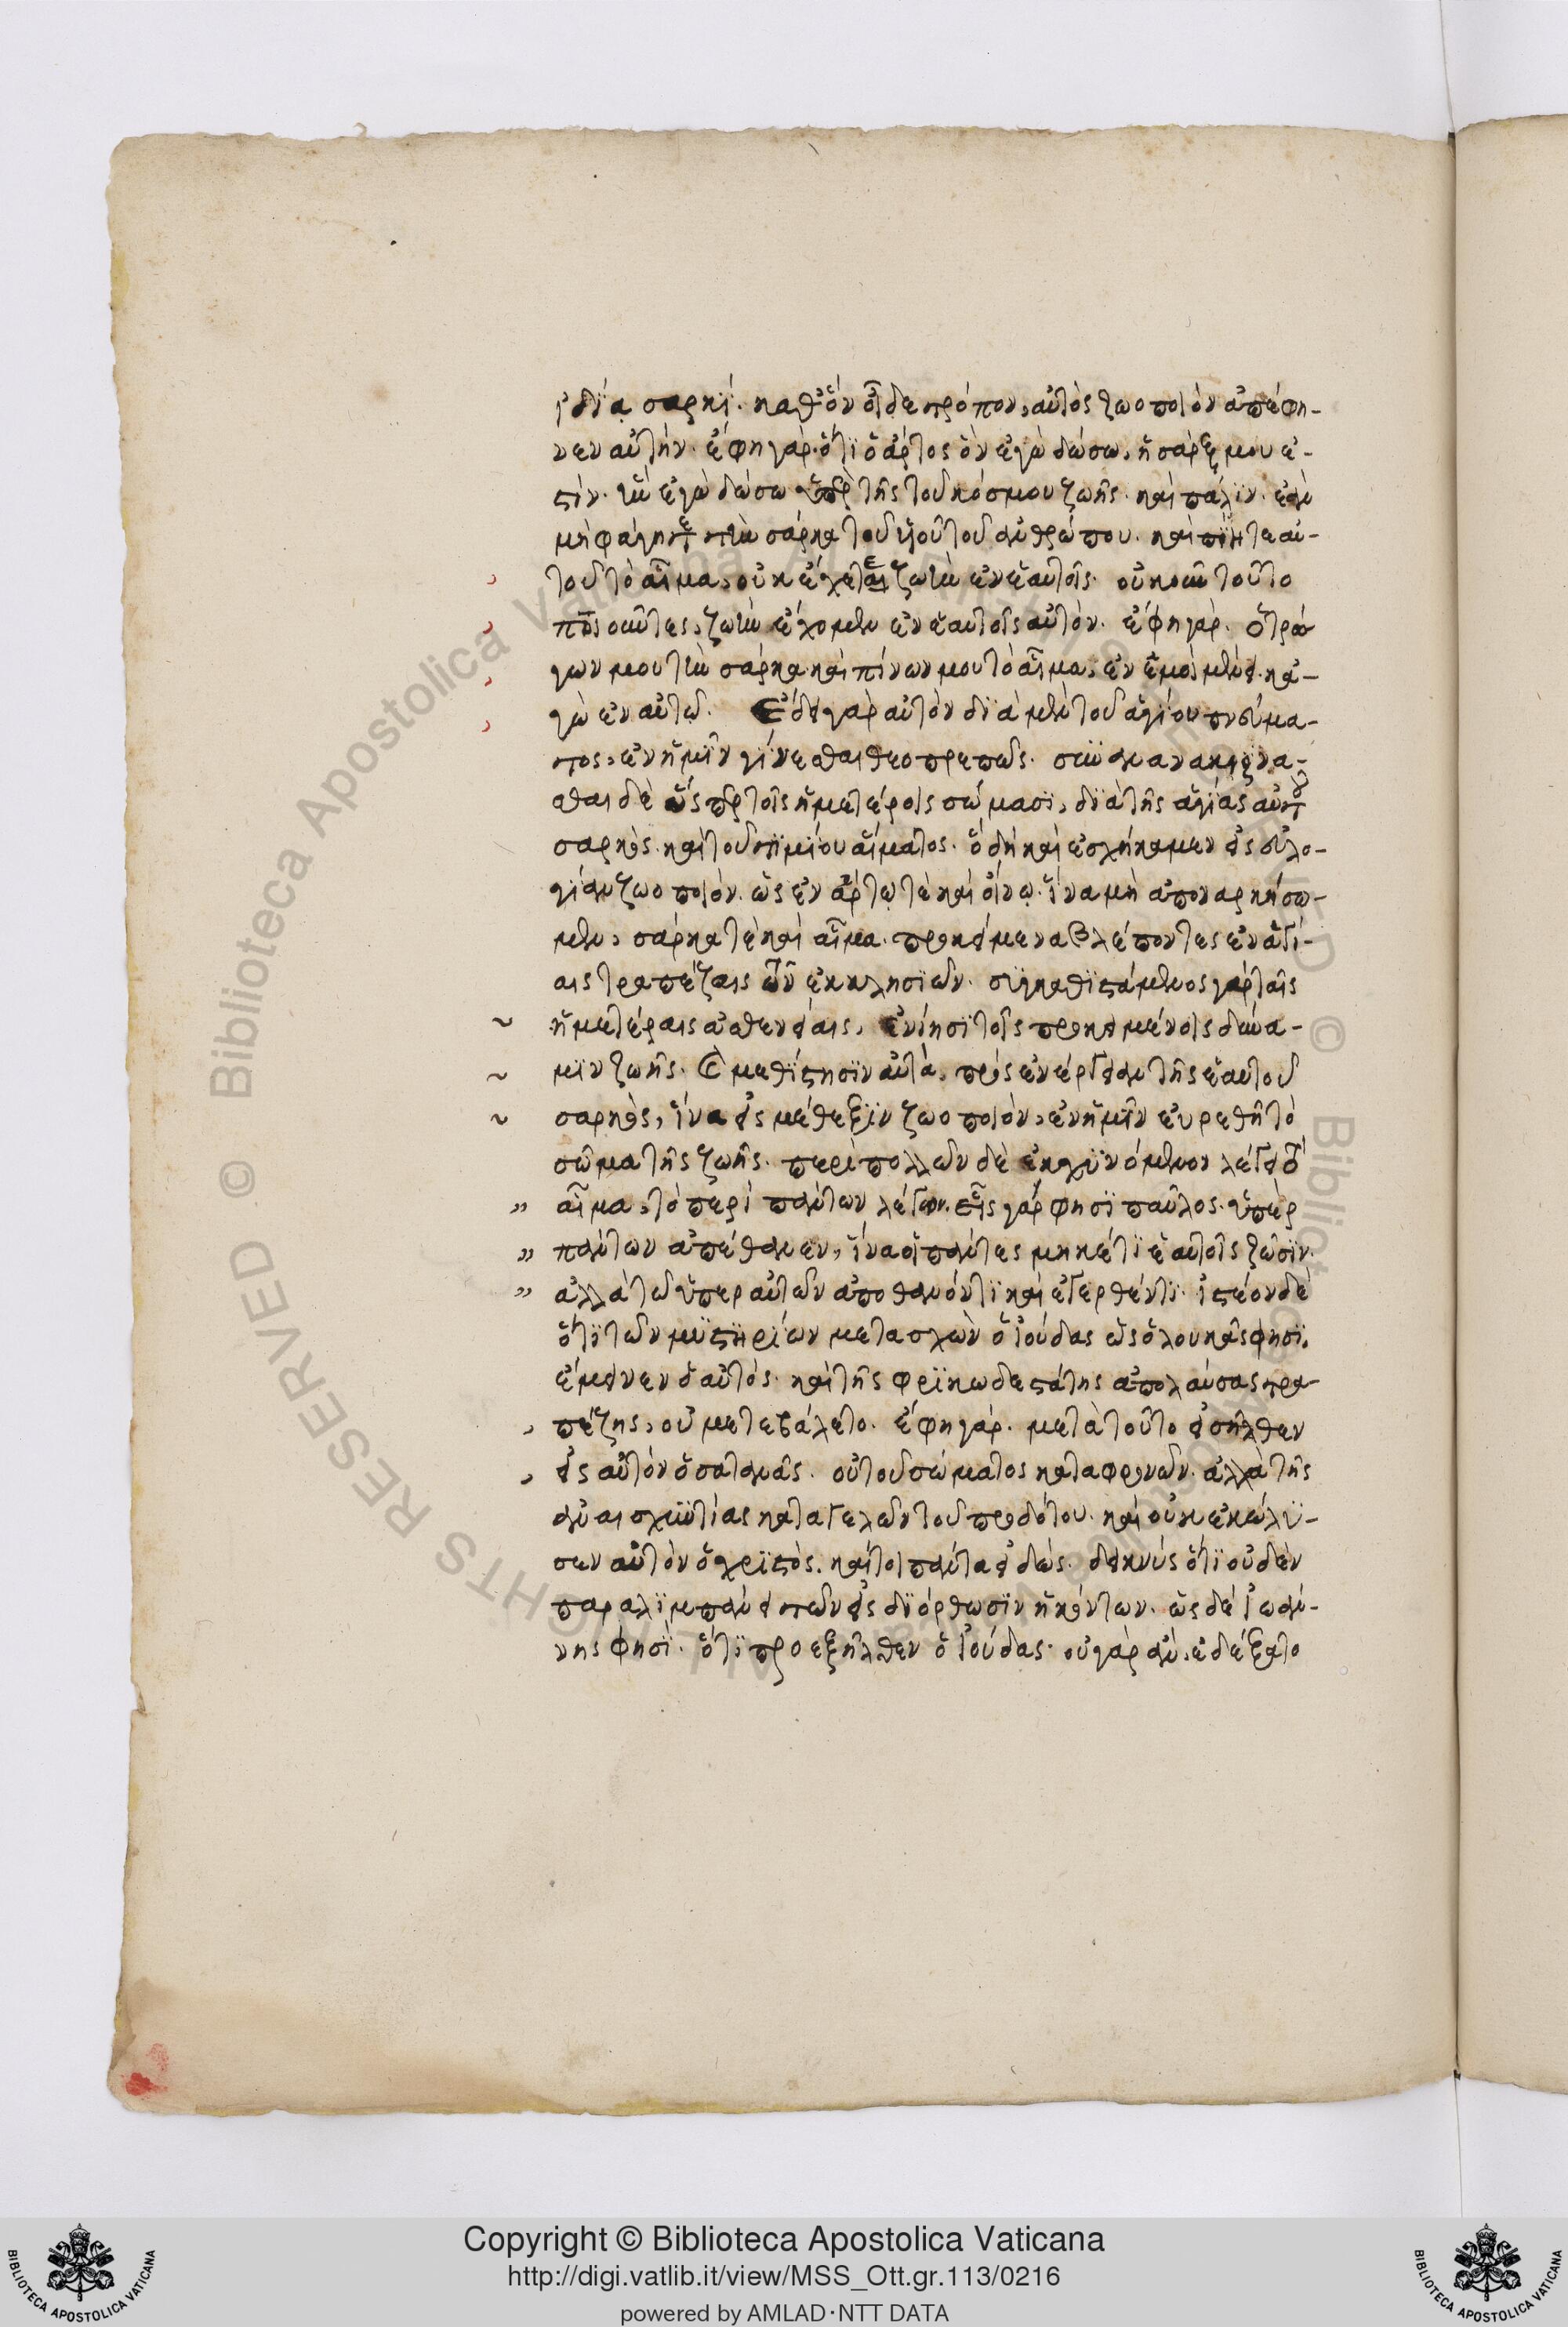 ἰδία σαρκί. καθ' ὃν οἶδε τρόπον, αὐτὸς ζωοποιὸν ἀπέφη-
νεν αὐτήν. ἔφη γάρ. ὅτι ὁ ἄρτος ὃν ἐγὼ δώσω, ἡ σάρξ μου ἐ-
στίν. ἣν ἐγὼ δώσω ὑπὲρ τῆς τοῦ κόσμου ζωῆς. καὶ πάλιν. ἐὰν
μὴ φάγητε τὴν σάρκα τοῦ υἱοῦ τοῦ ἀνθρώπου. καὶ πίητε αὐ-
τοῦ τὸ αἷμα, οὐκ ἔχετε ζωὴν ἐν ἑαυτοῖς. οὐκοῦν τοῦτο
ποιοῦντες, ζωὴν ἔχομεν ἐν ἑαυτοῖς αὐτόν. ἔφη γάρ. ὁ τρώ
γων μου τὴν σάρκα καὶ πίνων μου τὸ αἷμα, ἐν ἐμοὶ μένει. κα-
γὼ ἐν αὐτῷ. Ἔδει γὰρ αὐτὸν διὰ μὲν τοῦ ἁγίου πνεύμα-
τος, ἐν ἡμῖν γίνεσθαι θεοπρεπῶς. συνανακίρνα-
σθαι δὲ ὥσπερ τοῖς ἡμετέροις σώμασι, διὰ τῆς ἁγίας αὐτοῦ
σαρκὸς. καὶ τοῦ τιμίου αἵματος. ὃ δὴ καὶ ἐσχήκαμεν εἰς εὐλο-
γίαν ζωοποιόν. ὡς ἐν ἄρτῳ τὲ καὶ οἴνῳ. ἵνα μὴ ἀποναρκήσω-
μεν, σάρκα τὲ καὶ αἷμα. προκείμενα βλέποντες ἐν ἁγί-
αις τραπέζαις τῶν ἐκκλησιῶν. συγκαθιστάμενος γὰρ ταῖς
ἡμετέραις ἀσθενείαις, ἐνίησι τοῖς προκειμένοις δύνα-
μιν ζωῆς. Καὶ μεθίστησιν αὐτά, πρὸς ἐνέργειαν τῆς ἑαυτοῦ
σαρκὸς, ἵνα εἰς μέθεξιν ζωοποιόν, ἐν ἡμῖν εὑρεθῆ τὸ
σῶμα τῆς ζωῆς. περὶ πολλῶν δὲ ἐκχυνόμενον λέγει τὸ
αἷμα, τὸ περὶ πάντων λέγων. εἷς γάρ φησι παῦλος. ὑπὲρ
πάντων ἀπέθανεν, ἵνα οἱ πάντες μηκέτι ἑαυτοῖς ζῶσιν.
ἀλλὰ τῶ ὑπὲρ αὐτῶν ἀποθανόντι καὶ ἐγερθέντι. ἰστέον δὲ
ὅτι τῶν μυστηρίων μετασχὼν ὁ ἰούδας ὡς ὁ λουκᾶς φησι.
ἔμεινεν ὁ αὐτός. καὶ τῆς φρικωδεστάτης ἀπολαύσας τρα-
πέζης, οὐ μετεβάλετο. ἔφη γάρ. μετὰ τοῦτο εἰσῆλθεν
εἰς αὐτὸν ὁ σατανᾶς. οὐ τοῦ σώματος καταφρονῶν. ἀλλὰ τῆς
ἀναισχυντίας καταγελῶν τοῦ προδότου. καὶ οὐκ ἐκώλυ-
σεν αὐτὸν ὁ χριστός. καίτοι πάντα εἰδώς. δεικνὺς ὅτι οὐδὲν
παραλιμπάνει τῶν εἰς διόρθωσιν ἡκόντων. ὡς δὲ ἰωάν-
νης φησι. ὅτι προεξῆλθεν ὁ ἰούδας. οὐ γὰρ ἂν, ἐδέξατο
Copyright © Biblioteca Apostolica Vaticana
http://digi.vatlib.it/view/MSS_Ott.gr.113/0216
powered by AMLAD·NTT DATA